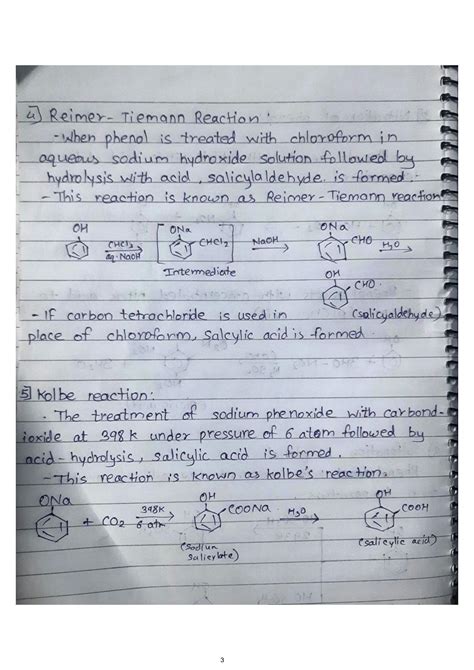 4) Reimer-Tiemann Reaction:
- When phenol is treated with chloroform in
aqueous sodium hydroxide solution followed by
hydrolysis with acid, salicylaldehyde is formed.
- This reaction is known as Reimer-Tiemann reaction
OH ONa ONa
CHCl3 CHCl2 NaOH CHO H3O
aq.NaOH
Intermediate OH
CHO
- If carbon tetrachloride is used in (salicyaldehyde)
place of chloroform, salcylic acid is formed
5) Kolbe reaction:
- The treatment of sodium phenoxide with carbond-
ioxide at 398 k under pressure of 6 atom followed by
acid-hydrolysis, salicylic acid is formed.
- This reaction is known as kolbe's reaction.
ONa OH OH
+ CO2 398K COONa H3O COOH
6 atm
(sodium (salicylic acid)
salicylate)
3